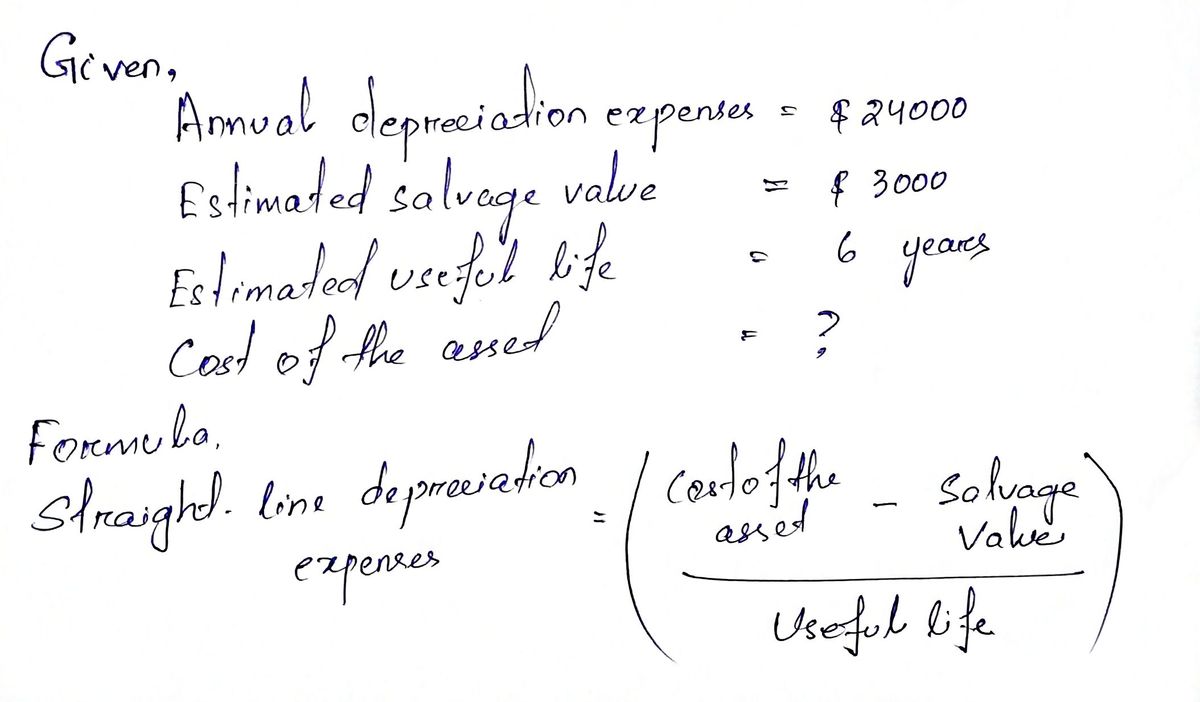 Given,
Annual depreciation expenses = $ 24000
Estimated salvage value = $ 3000
Estimated useful life = 6 years
Cost of the asset = ?
Formula.
Straight-line depreciation expenses = ( Cost of the asset - Salvage Value
Useful life )